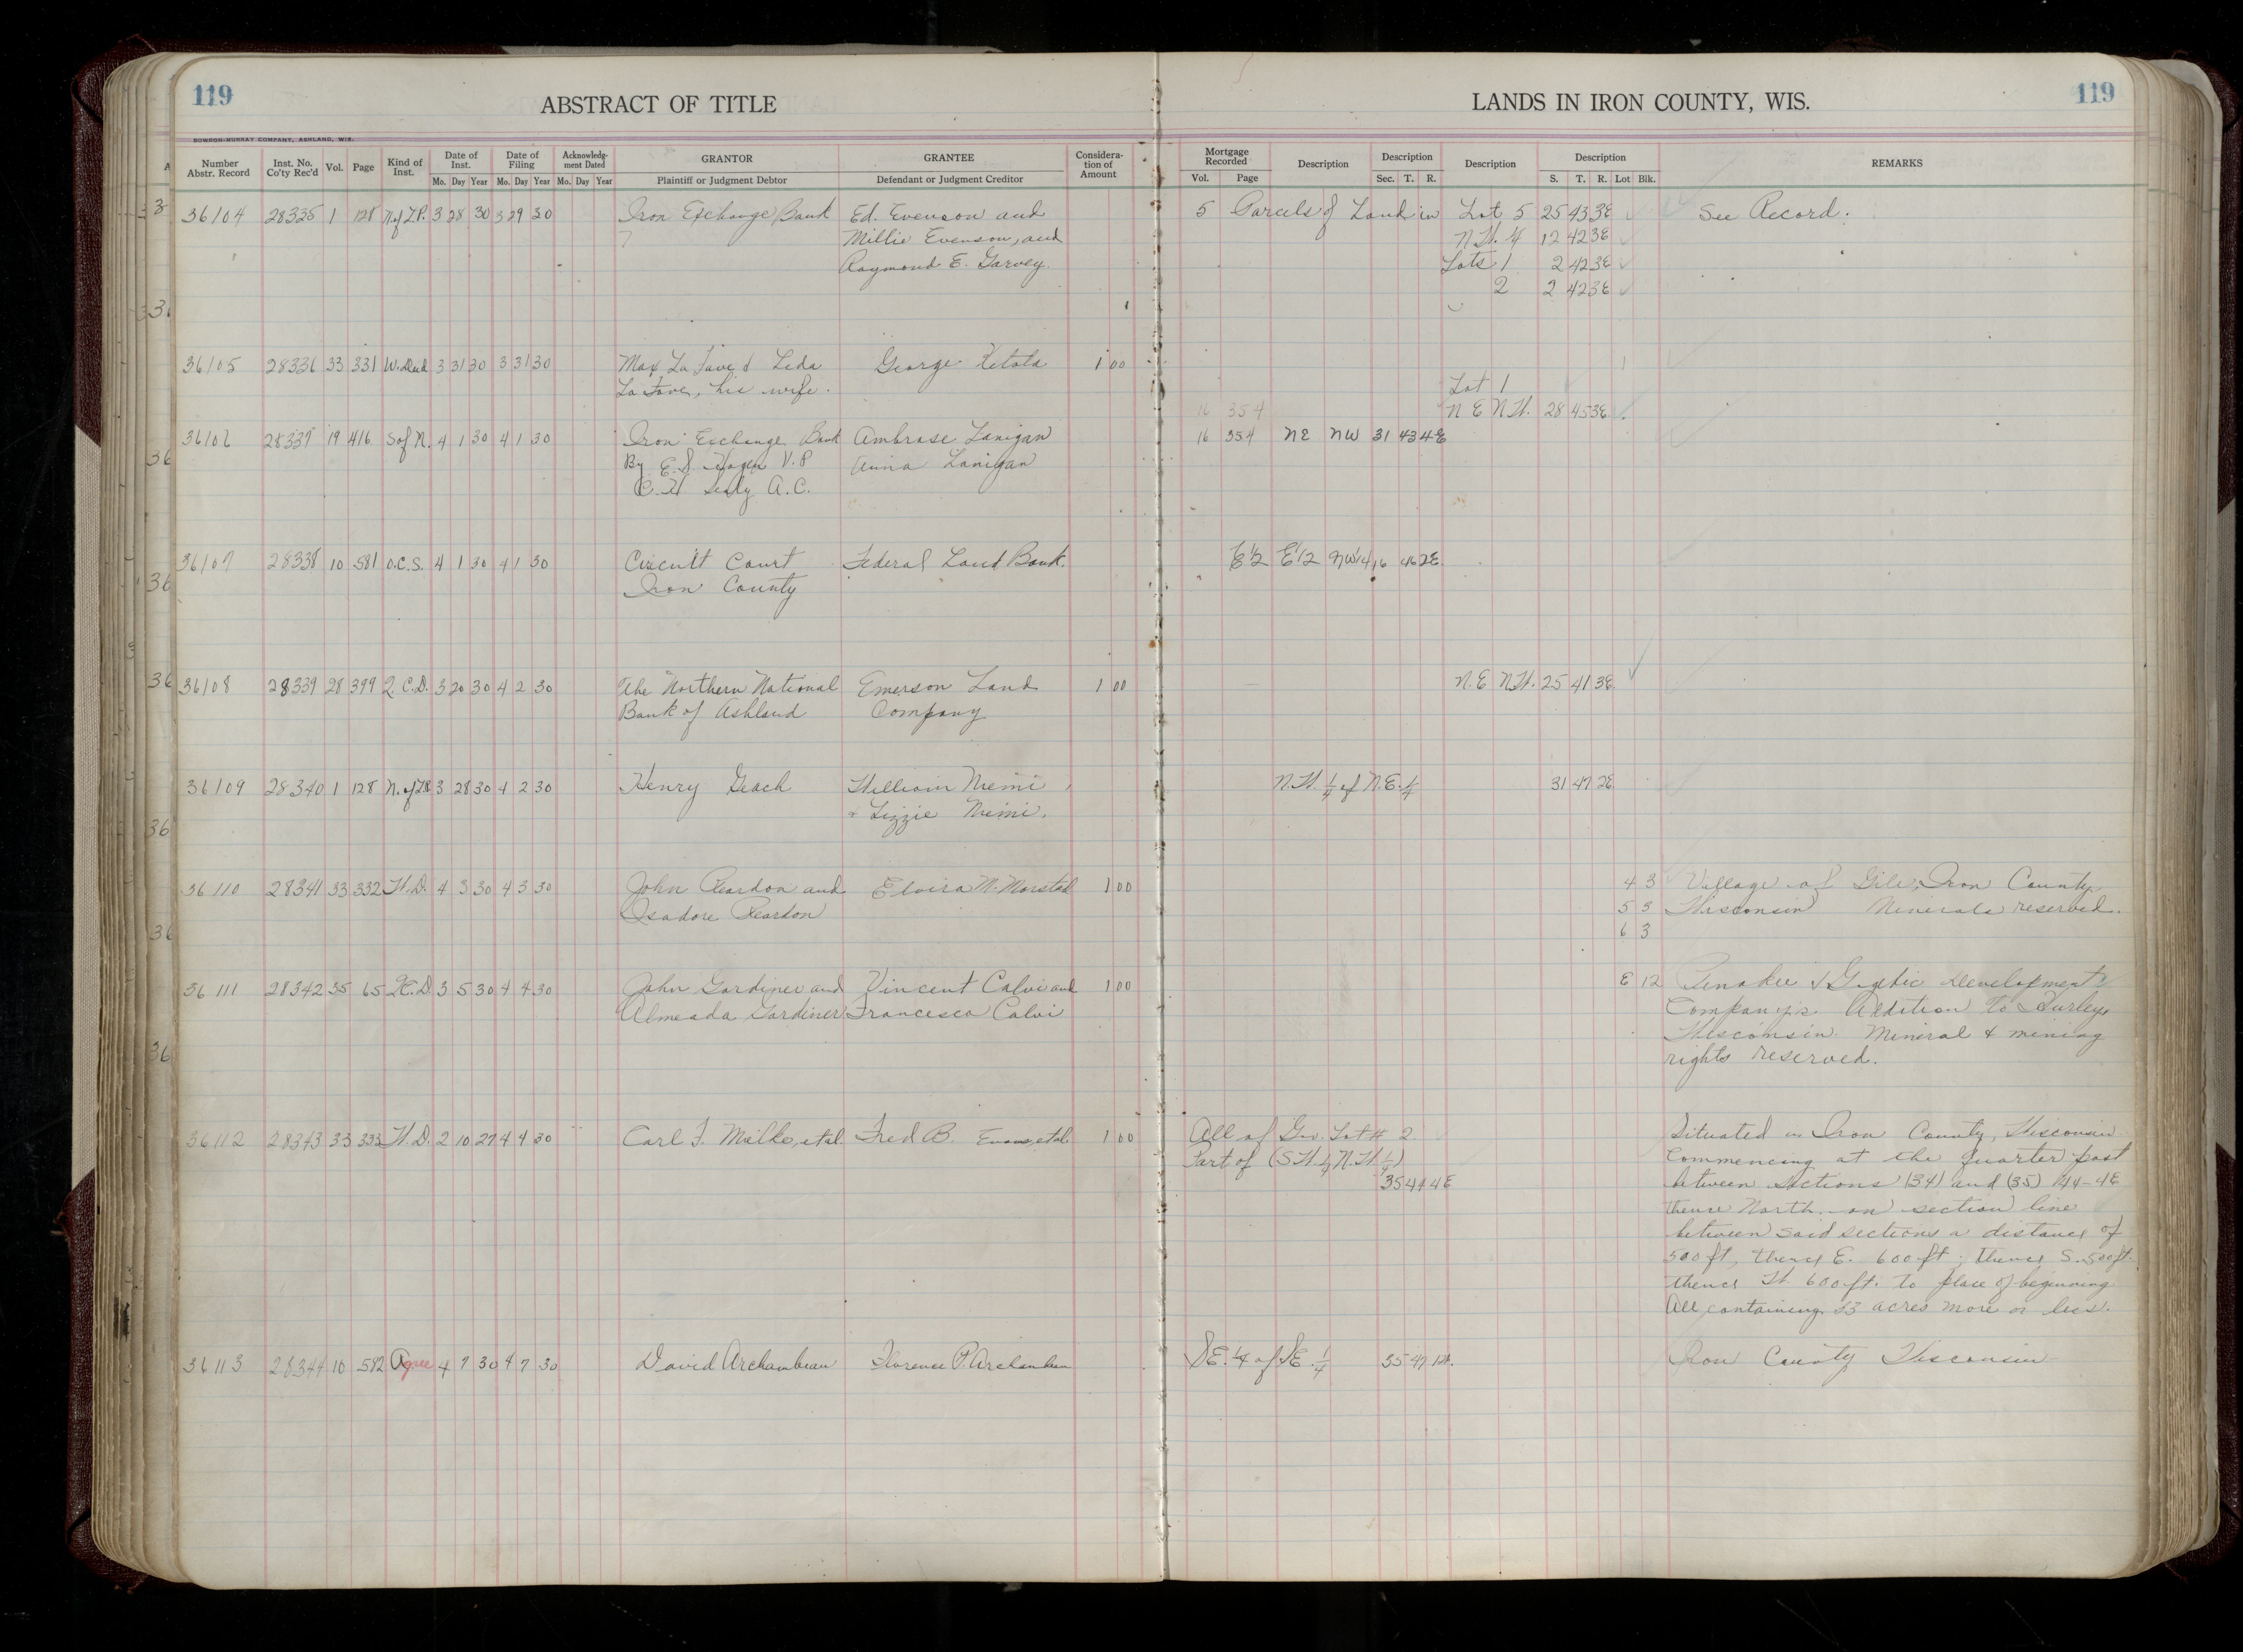 119
ABSTRACT OF TITLE
LANDS IN IRON COUNTY, WIS.
119
BOWRON-MURRAY COMPANY, ASHLAND, WIS.
Number Abstr. Record Inst. No. Co'ty Rec'd Vol. Page Kind of Inst. Date of Inst. Mo. Day Year Date of Filing Mo. Day Year Acknowledgment Dated Mo. Day Year GRANTOR Plaintiff or Judgment Debtor GRANTEE Defendant or Judgment Creditor Consideration of Amount Mortgage Recorded Vol. Page Description Description Sec. T. R. Description Description S. T. R. Lot Blk. REMARKS
36104 28335 1 128 N of L.P. 3 28 30 3 29 30 Iron Exchange Bank Ed. Evenson and 5 Parcels of Land in Lot 5 25 43 3E See Record.
Millie Evenson, and N.W. 4 12 42 3E
Raymond E. Garvey. Lots 1 2 42 3E
2 2 42 3E
36105 28336 33 331 W. Deed 3 31 30 3 31 30 Max La Fave & Leda George Ketola 1 00
La Fave, his wife. Lot 1
16 354 N E N W. 28 45 3E
36106 28337 19 416 S of M. 4 1 30 4 1 30 Iron Exchange Bank Ambrose Lanigan 16 354 NE NW 31 43 4E
By E. S. V.P. Anna Lanigan
C. H A.C.
36107 28338 10 581 O.C.S. 4 1 30 4 1 30 Circuit Court Federal Land Bank. E½ E½ NW¼ 16 46 2E
Iron County
36108 28339 28 399 Q.C.D. 3 20 30 4 2 30 The Northern National Emerson Land 1 00 N.E N.W. 25 41 3E
Bank of Ashland Company
36109 28340 1 128 N. of L.P. 3 28 30 4 2 30 Henry Geach William Niemi N.W. ¼ of N.E. ¼ 31 47 2E
& Lizzie Niemi.
36110 28341 33 332 W.D. 4 3 30 4 3 30 John Reardon and Elvira M. Morstad 1 00 4 3 Village of Gile, Iron County,
Isadore Reardon 5 3 Wisconsin Minerals reserved.
6 3
36111 28342 35 65 Q.C.D. 3 5 30 4 4 30 John Gardiner and Vincent Calvi and 1 00 E 12 Penokee & Gogebic Development
Almeada Gardiner Francesca Calvi Company's Addition to Hurley,
Wisconsin. Mineral & mining
rights reserved.
36112 28343 33 333 W.D. 2 10 27 4 4 30 Carl F. Mielke, et al. Fred B. Evans, et al. 1 00 All of Gov. Lot # 2 Situated in Iron County, Wisconsin
Part of (S.W. ¼ N.W. ¼) Commencing at the quarter post
35 44 4E between sections (34) and (35) 44-4E
thence North. on section line
between said sections a distance of
500 ft, thence E. 600 ft; thence S. 500 ft.
thence W. 600 ft. to place of beginning
All containing 53 acres more or less.
36113 28344 10 582 Agree 4 7 30 4 7 30 David Archambeau Florence P. Archambeau SE. ¼ of SE. ¼ 35 47 1W. Iron County Wisconsin